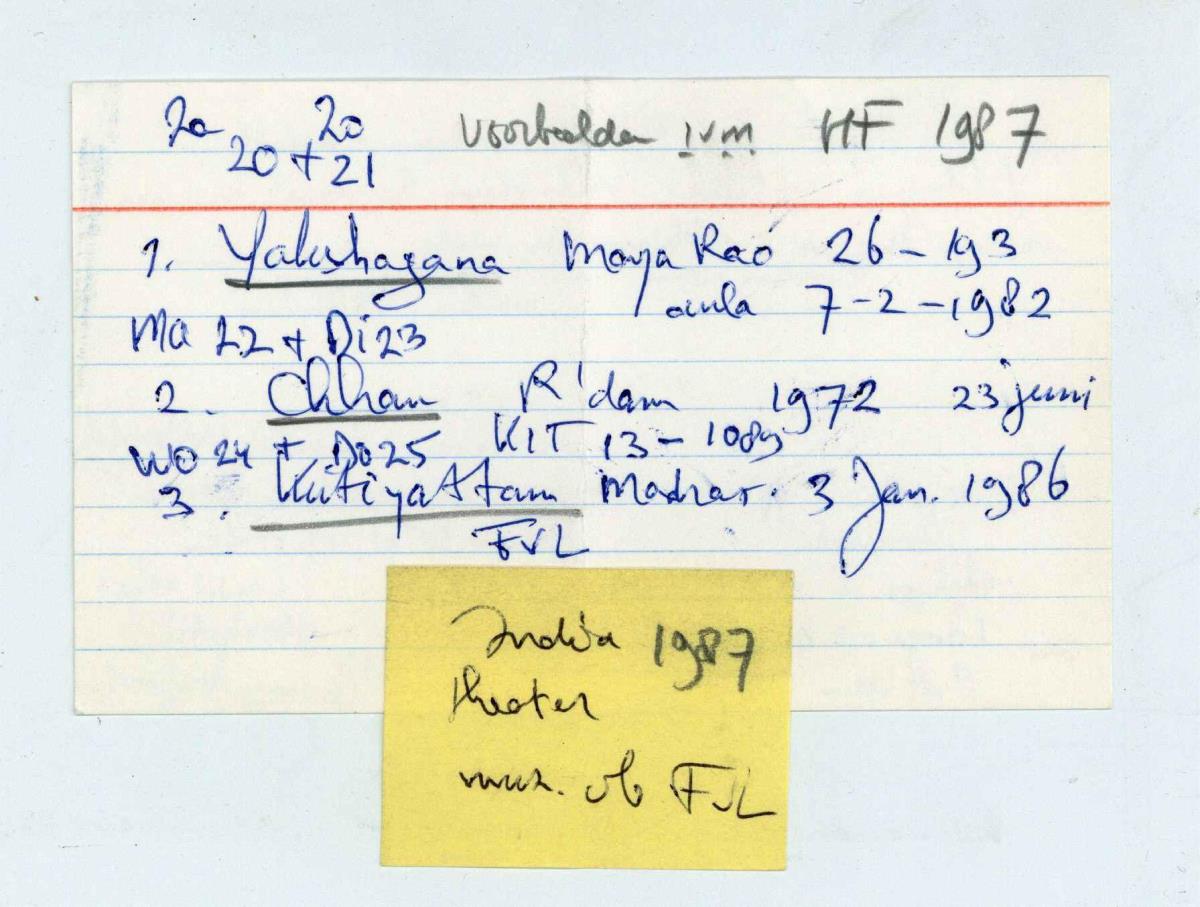 Za 20 voorbeelden i.v.m. HF 1987
20 + 21
1. Yakshagana Maya Rao 26 - 193
aula 7-2-1982
Ma 22 + Di 23
2. Chhau R'dam 1972 23 juni
KIT 13 - 1089
Wo 24 + Do 25
3. Kutiyattam Madras. 3 Jan. 1986
FvL
India 1987
theater
muz. vb FvL